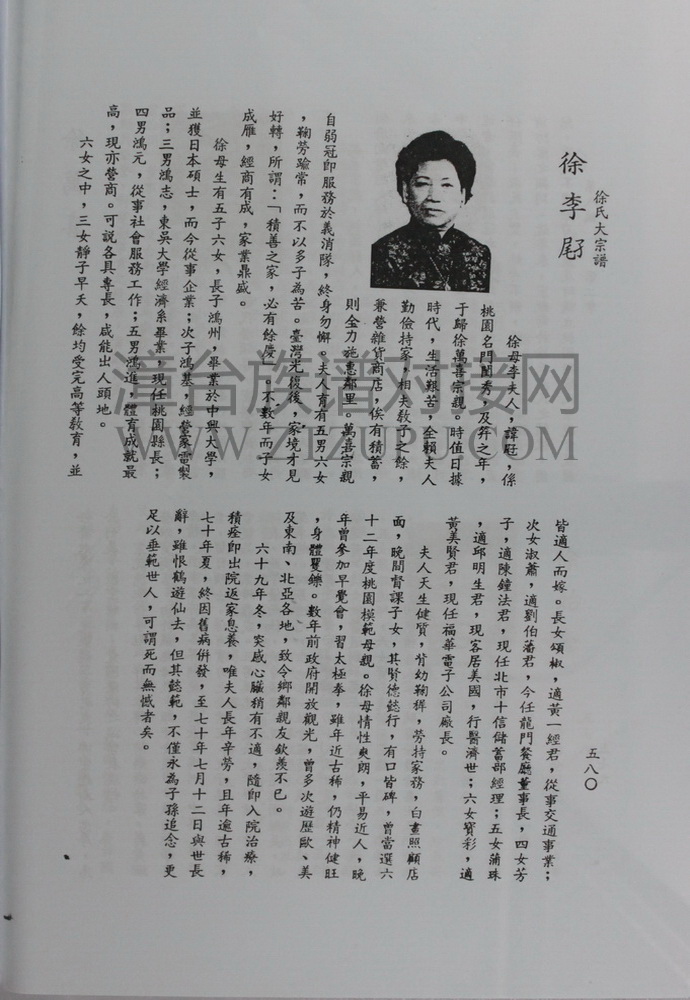 徐氏大宗譜
徐李屘
徐母李夫人，諱屘，係
桃園名門閨秀，及笄之年，
于歸徐萬喜宗親。時值日據
時代，生活艱苦，全賴夫人
勤儉持家，相夫教子之餘，
兼營雜貨商店，俟有積蓄，
則全力施惠鄰里。萬喜宗親
自弱冠即服務於義消隊，終身勿懈。夫人育有五男六女
，鞠勞踰常，而不以多子為苦。臺灣光復後，家境才見
好轉，所謂：「積善之家，必有餘慶」。不數年而子女
成雁，經商有成，家業鼎盛。
徐母生有五子六女，長子鴻州，畢業於中興大學，
並獲日本碩士，而今從事企業；次子鴻基，經營家電製
品；三男鴻志，東吳大學經濟系畢業，現任桃園縣長；
四男鴻元，從事社會服務工作；五男鴻進，體育成就最
高，現亦營商。可說各具專長，咸能出人頭地。
六女之中，三女靜子早夭，餘均受完高等教育，並
皆適人而嫁。長女頌椒，適黃一經君，從事交通事業；
次女淑蕭，適劉伯藩君，今任龍門餐廳董事長，四女芳
子，適陳鐘法君，現任北市十信儲蓄部經理；五女蒲珠
，適邱明生君，現客居美國，行醫濟世；六女寶彩，適
黃美賢君，現任福華電子公司廠長。
夫人天生健質，背幼鞠稺，勞持家務，白晝照顧店
面，晚間督課子女，其賢德懿行，有口皆碑，曾當選六
十二年度桃園模範母親。徐母情性爽朗，平易近人，晚
年曾參加早覺會，習太極拳，雖年近古稀，仍精神健旺
，身體矍鑠。數年前政府開放觀光，曾多次遊歷歐、美
及東南、北亞各地，致令鄉鄰親友欽羨不已。
六十九年冬，突感心臟稍有不適，隨即入院治療，
積痊即出院返家息養，唯夫人長年辛勞，且年逾古稀，
七十年夏，終因舊病併發，至七十年七月十二日與世長
辭，雖恨鶴遊仙去，但其懿範，不僅永為子孫追念，更
足以垂範世人，可謂死而無憾者矣。
五八〇
漳台族谱对接网
WWW.ZTZUPU.COM